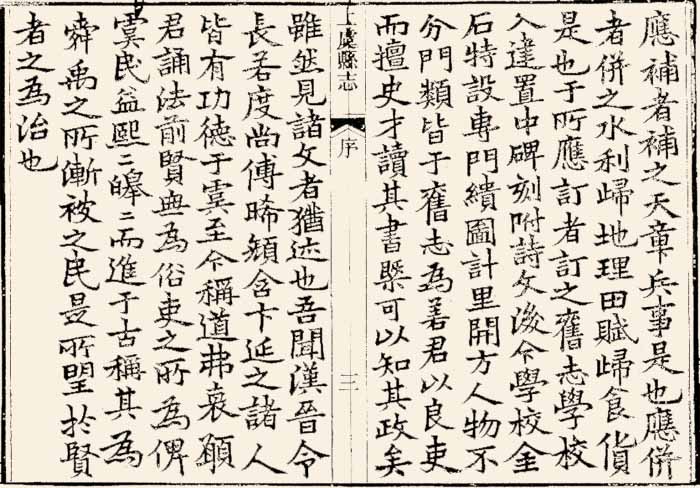 應補者補之天章兵事是也應併
者併之水利歸地理田賦歸食貨
是也于所應訂者訂之舊志學校
入建置中碑刻附詩文後今學校金
石特設專門繢圖計里開方人物不
分門類皆于舊志為善君以良吏
而擅史才讀其書槩可以知其政矣
虞縣志
序
三
雖然見諸文者猶迹也吾聞漢晉令
長若度尚傅晞顏含卞延之諸人
皆有功德于虞至今稱道弗衰願
君誦法前賢無為俗吏之所為俾
虞民益熙二皞二而進于古稱其為
舜禹之所漸被之民是所朢於賢
者之為治也